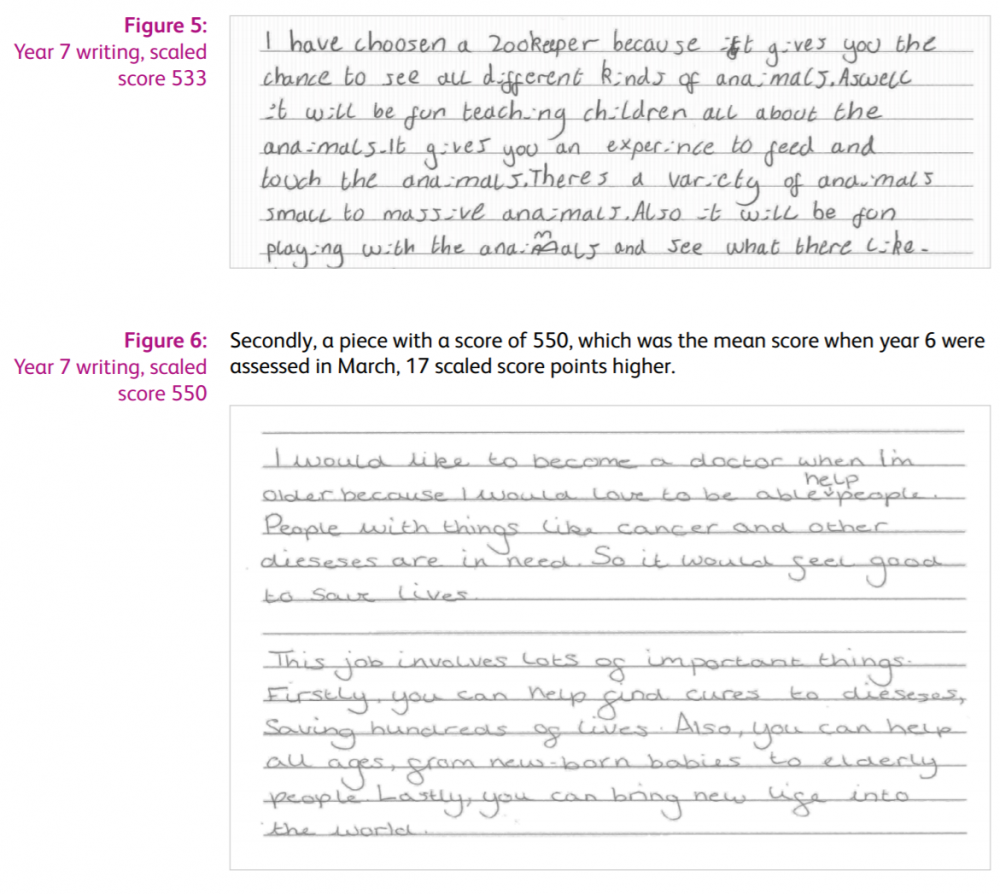 Figure 5:
Year 7 writing, scaled
score 533
I have choosen a Zookeeper because it gives you the
chance to see all different kinds of anaimals. Aswell
it will be fun teaching children all about the
anaimals. It gives you an experince to feed and
touch the anaimals. Theres a variety of anaimals
small to massive anaimals. Also it will be fun
playing with the anaimals and see what there like.
Figure 6:
Year 7 writing, scaled
score 550
Secondly, a piece with a score of 550, which was the mean score when year 6 were
assessed in March, 17 scaled score points higher.
I would like to become a doctor when I'm
older because I would love to be able help people.
People with things like cancer and other
dieseses are in need. So it would feel good
to save lives.
This job involves lots of important things.
Firstly, you can help find cures to dieseses,
Saving hundreds of lives. Also, you can help
all ages, from new-born babies to elderly
people. Lastly, you can bring new life into
the world.